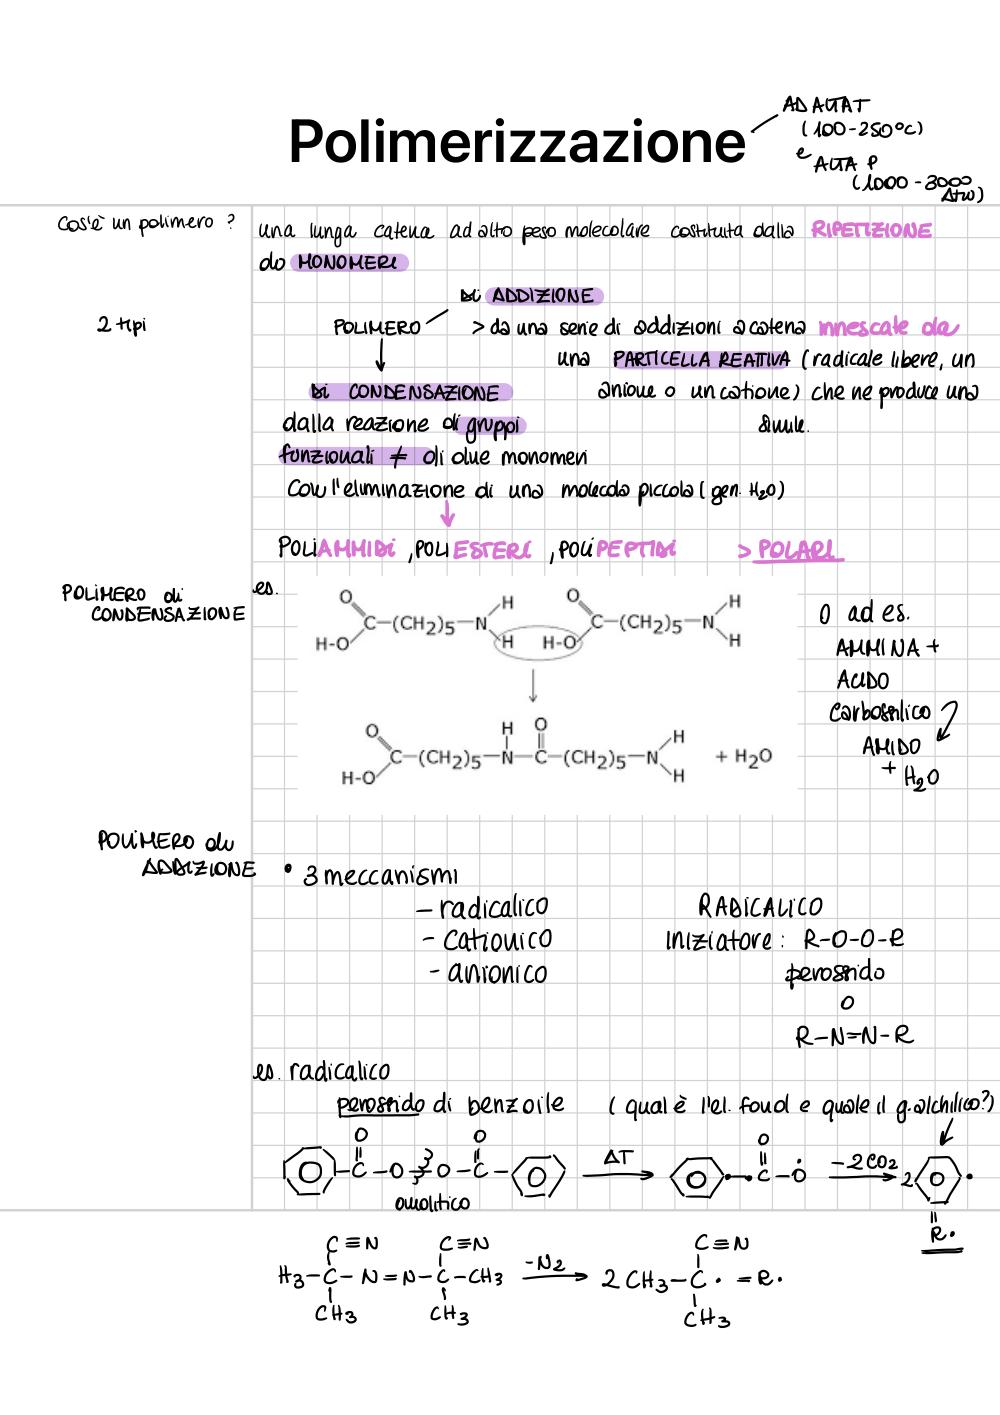 Polimerizzazione
AD ALTA T
(100-250°C)
e
ALTA P
(1000-3000
Atm)
Cos'è un polimero ?
una lunga catena ad alto peso molecolare costituita dalla RIPETIZIONE
do MONOMERI
di ADDIZIONE
2 tipi
POLIMERO
> da una serie di addizioni a catena innescate da
una PARTICELLA REATTIVA (radicale libere, un
di CONDENSAZIONE
anione o un catione) che ne produce una
dalla reazione di gruppi
simile.
funzionali ≠ di due monomeri
Con l'eliminazione di una molecola piccola (gen. H2O)
POLIAMMIDI, POLIESTERI, POLIPEPTIDI > POLARI
POLIMERO di
CONDENSAZIONE
es.
O
H-O
C-(CH2)5-N
H
H
O
H-O
C-(CH2)5-N
H
H
O
H-O
C-(CH2)5-N-C-(CH2)5-N
H
O
H
H
+ H2O
O ad es.
AMMINA +
ACIDO
Carbossilico
AMIDO
+ H2O
POLIMERO di
ADDIZIONE
• 3 meccanismi
- radicalico
- cationico
- anionico
RADICALICO
Iniziatore: R-O-O-R
perossido
o
R-N=N-R
es. radicalico
perossido di benzoile (qual è l'el. fond e quale il g. alchilico?)
O
O
O
-C-O-O-C-
ΔT
-C-O•
-2CO2
2
•
omolitico
R•
C≡N
C≡N
C≡N
H3-C-N=N-C-CH3
-N2
2 CH3-C• = R•
CH3
CH3
CH3